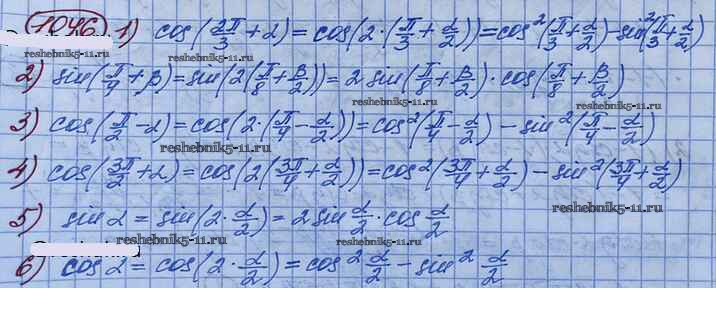 1046 1) cos(2π/3 + α) = cos(2·(π/3 + α/2)) = cos²(π/3 + α/2) − sin²(π/3 + α/2)
reshebnik5-11.ru
2) sin(π/4 + β) = sin(2(π/8 + β/2)) = 2 sin(π/8 + β/2) · cos(π/8 + β/2)
reshebnik5-11.ru
3) cos(π/2 − α) = cos(2·(π/4 − α/2)) = cos²(π/4 − α/2) − sin²(π/4 − α/2)
reshebnik5-11.ru
4) cos(3π/2 + α) = cos(2(3π/4 + α/2)) = cos²(3π/4 + α/2) − sin²(3π/4 + α/2)
reshebnik5-11.ru
5) sin α = sin(2·α/2) = 2 sin α/2 · cos α/2
reshebnik5-11.ru reshebnik5-11.ru
6) cos α = cos(2·α/2) = cos² α/2 − sin² α/2